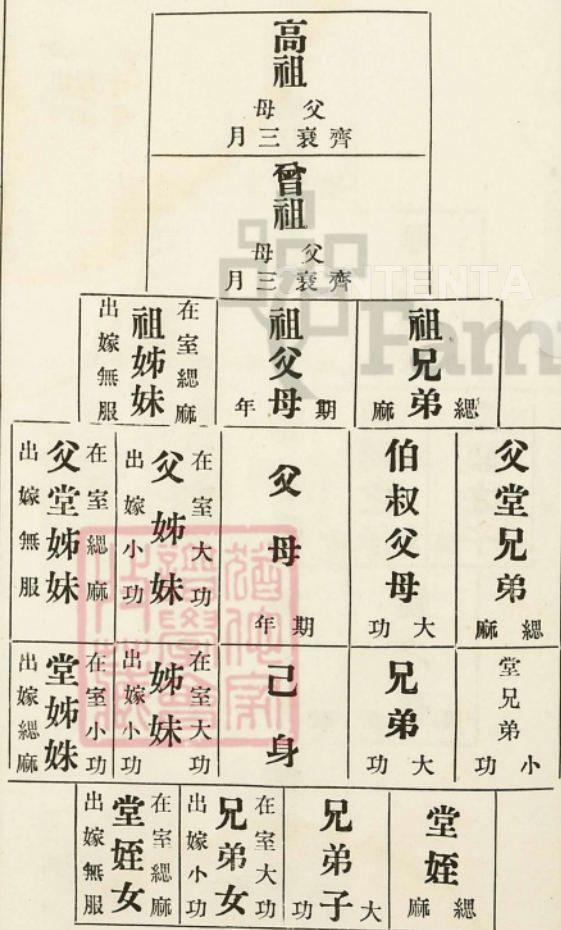 高祖
父母
齊衰三月
曾祖
父母
齊衰三月
祖兄弟
緦麻
祖父母
期年
在室緦麻
祖姊妹
出嫁無服
父堂兄弟
緦麻
伯叔父母
大功
父母
期年
在室大功
父姊妹
出嫁小功
在室緦麻
父堂姊妹
出嫁無服
堂兄弟
小功
兄弟
大功
己身
在室大功
姊妹
出嫁小功
在室小功
堂姊姝
出嫁緦麻
堂姪
緦麻
兄弟子
大功
在室大功
兄弟女
出嫁小功
在室緦麻
堂姪女
出嫁無服
NTENTA
Fami